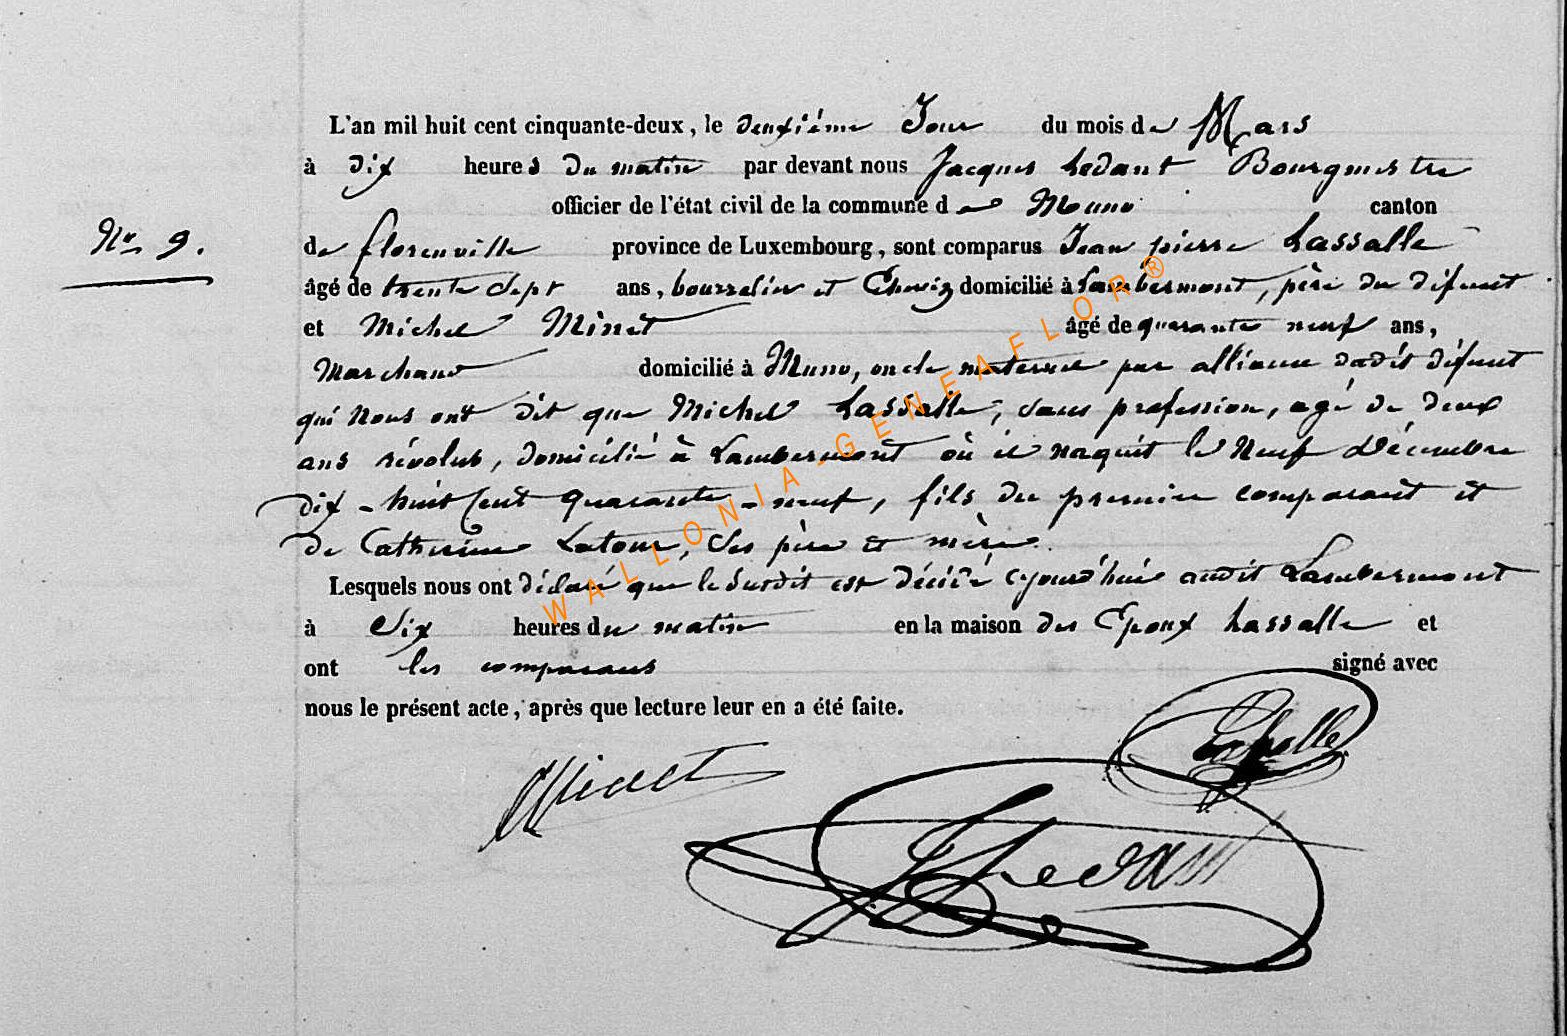 L'an mil huit cent cinquante-deux, le deuxième Jour du mois de Mars
à dix heures du matin par devant nous Jacques Ledant Bourgmestre
officier de l'état civil de la commune de Muno canton
No 9.
de florenville province de Luxembourg, sont comparus Jean pierre Lassalle
âgé de trente Sept ans, bourrelier et domicilié à Lambermont, père du défunt
et Michel Minet âgé de quarante neuf ans,
Marchand domicilié à Muno, oncle maternel par alliance dudit défunt
qui Nous ont dit que Michel Lassalle, sans profession, agé de deux
ans révolus, domicilié à Lambermont où il naquit le Neuf Décembre
dix-huit Cent quarante-neuf, fils du premier comparant et
de Catherine Latour, Ses père et mère.
Lesquels nous ont déclaré que le Susdit est décédé aujourd'hui audit Lambermont
à Six heures du matin en la maison des Epoux Lassalle et
ont les comparans signé avec
nous le présent acte, après que lecture leur en a été faite.
Lassalle
Minet
Ledant
WALLONIA-GENEAFLOR®